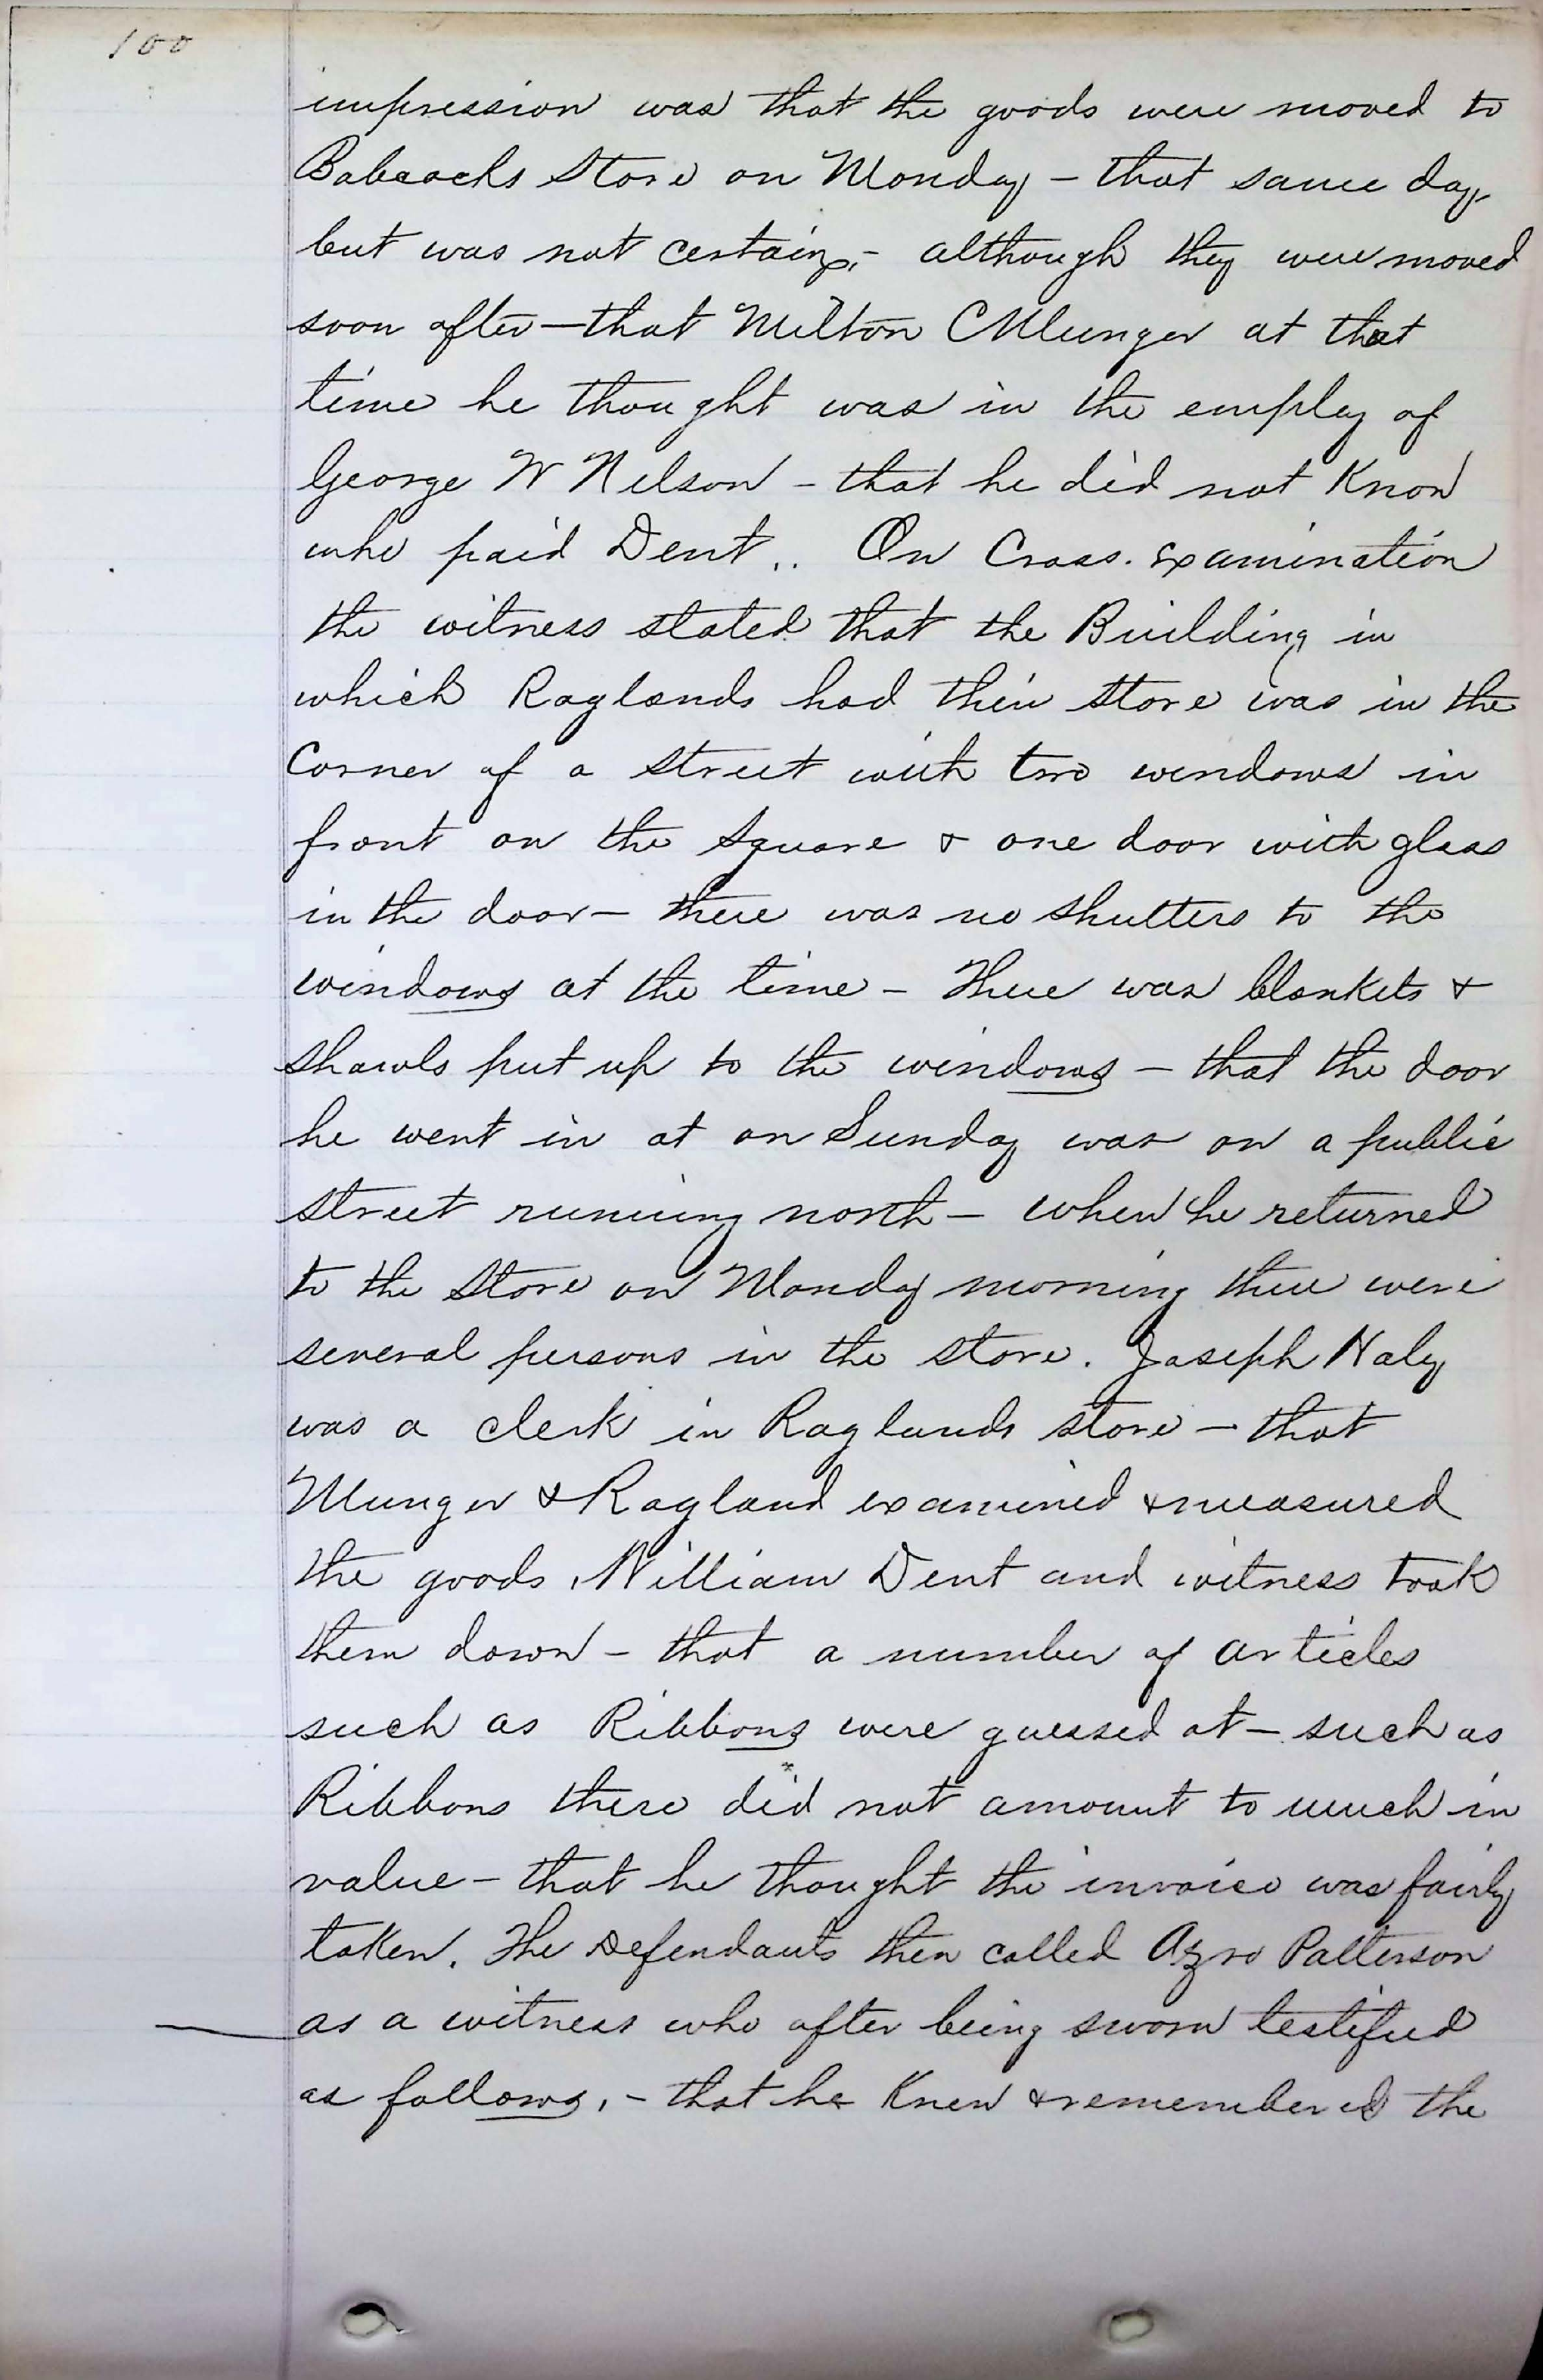 100
impression was that the goods were moved to
Babcocks Store on Monday - that same day,
but was not certain, - although they were moved
soon after - that Milton C Munger at that
time he thought was in the employ of
George W Nelson - that he did not Know
who paid Dent.. On Cross. Examination
the witness stated that the Building in
which Raglands had their store was in the
Corner of a street with two windows in
front on the Square & one door with glass
in the door - there was no shutters to the
windows at the time - There was blankets &
shawls put up to the windows - that the door
he went in at on Sunday was on a public
street running north - when he returned
to the Store on Monday morning there were
several persons in the store. Joseph Haly
was a clerk in Raglands store - that
Munger & Ragland examined & measured
the goods, William Dent and witness took
them down - that a number of articles
such as Ribbons were guessed at - such as
Ribbons these did not amount to much in
value - that he thought the invoice was fairly
taken. The Defendants then called Azro Patterson
as a witness who after being sworn testified
as follows, - that he Knew & remembered the